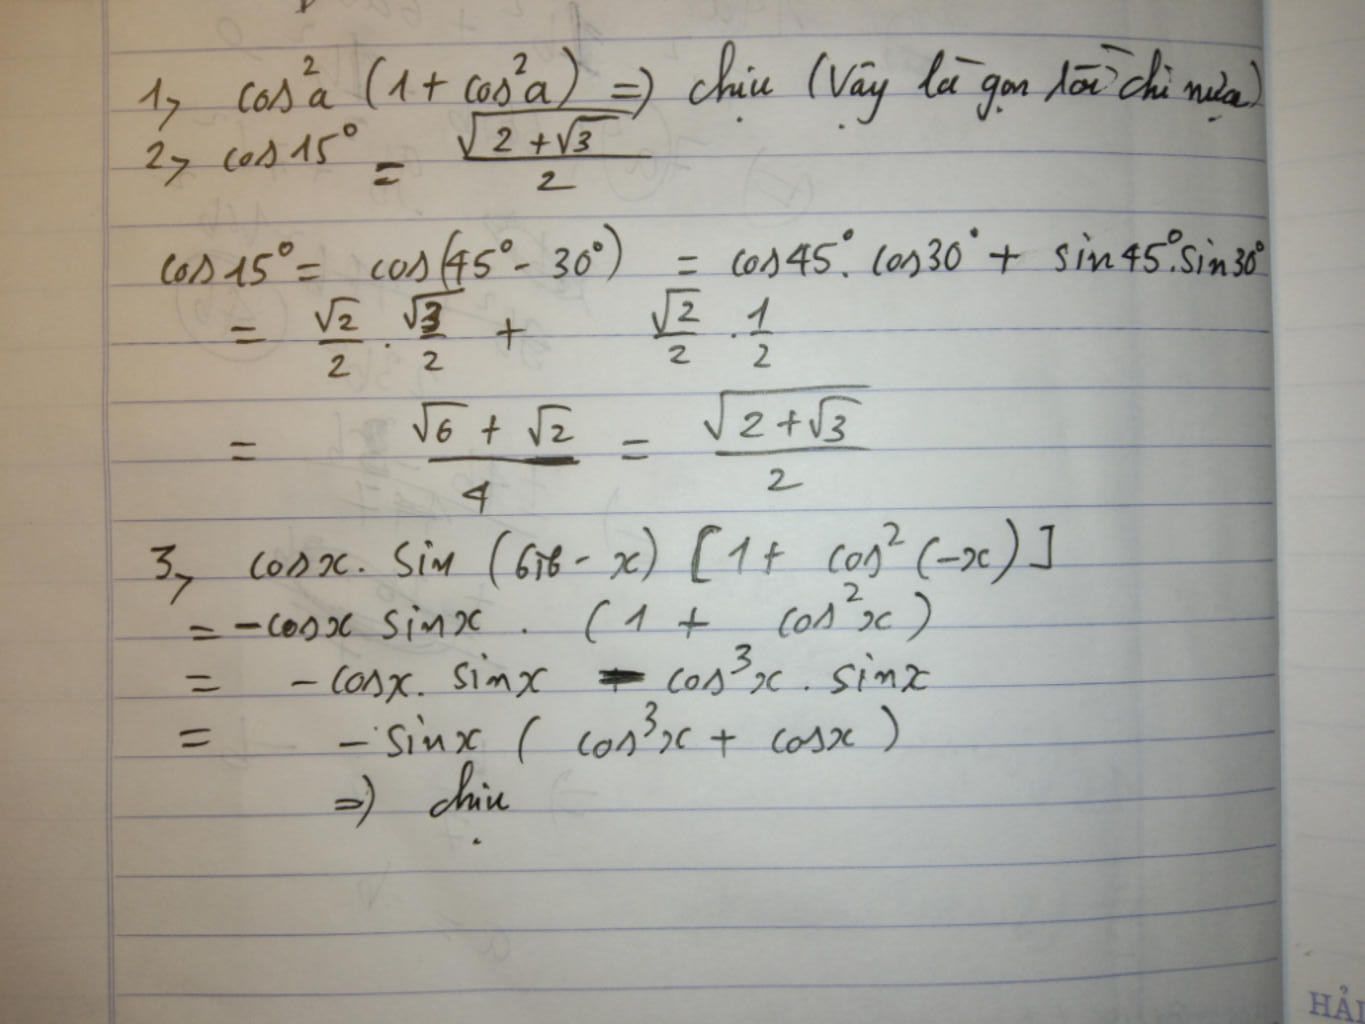 1, cos²a (1 + cos²a) => chịu (Vậy là gọn rồi chi nữa)
2, cos15° = √(2 + √3)/2
cos15° = cos(45° - 30°) = cos45°. cos30° + sin45°.sin30°
= √2/2 . √3/2 + √2/2 . 1/2
= (√6 + √2)/4 = √(2 + √3)/2
3, cosx. sin (6π - x) [1 + cos² (-x)]
= -cosx sinx . (1 + cos²x)
= - cosx. sinx - cos³x . sinx
= - sinx ( cos³x + cosx )
=> chịu
HẢI